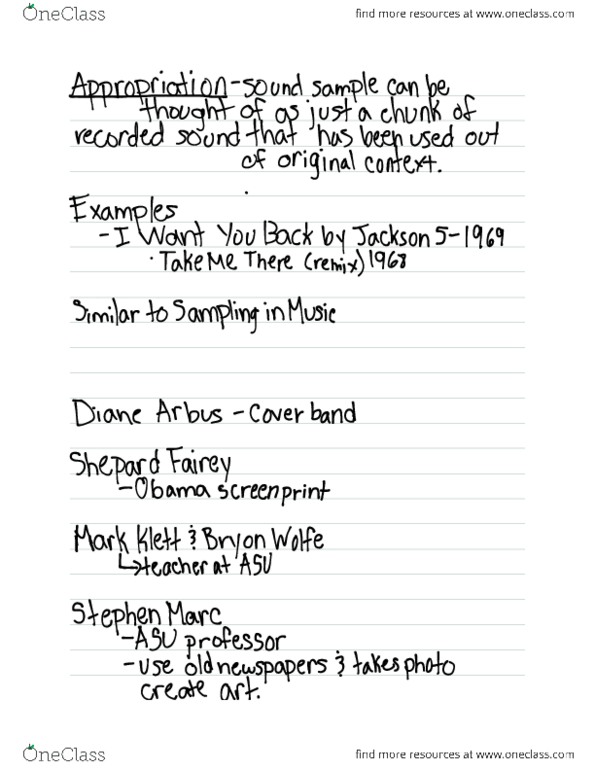 OneClass
find more resources at www.oneclass.com
Appropriation - sound sample can be
thought of as just a chunk of
recorded sound that has been used out
of original context.
Examples
- I Want You Back by Jackson 5 - 1969
· Take Me There (remix) 1968
Similar to Sampling in Music
Diane Arbus - Cover band
Shepard Fairey
- Obama screenprint
Mark Klett & Bryon Wolfe
↳ teacher at ASU
Stephen Marc
- ASU professor
- use old newspapers & takes photo
create art.
OneClass
find more resources at www.oneclass.com